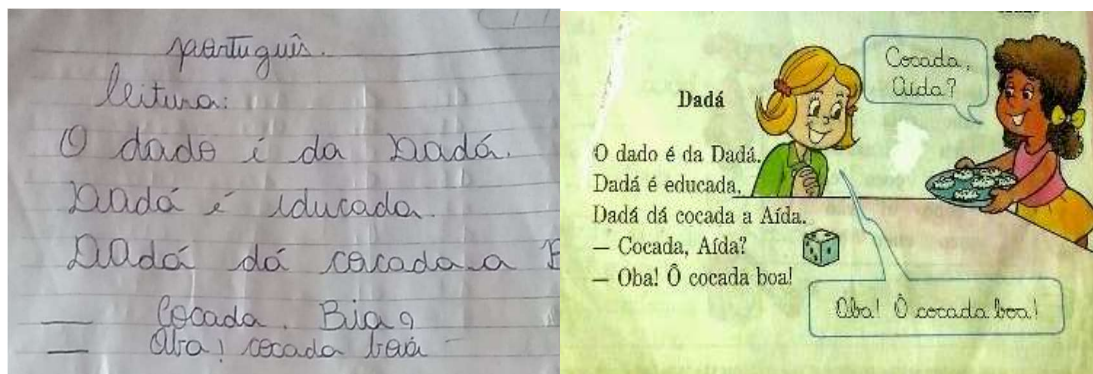 português.
leitura:
O dado é da Dadá.
Dadá é educada.
Dadá dá cocada a B
— Cocada. Bia?
— Oba! cocada boa
Cocada,
Aída?
Dadá
O dado é da Dadá.
Dadá é educada.
Dadá dá cocada a Aída.
— Cocada, Aída?
— Oba! Ô cocada boa!
Oba! Ô cocada boa!